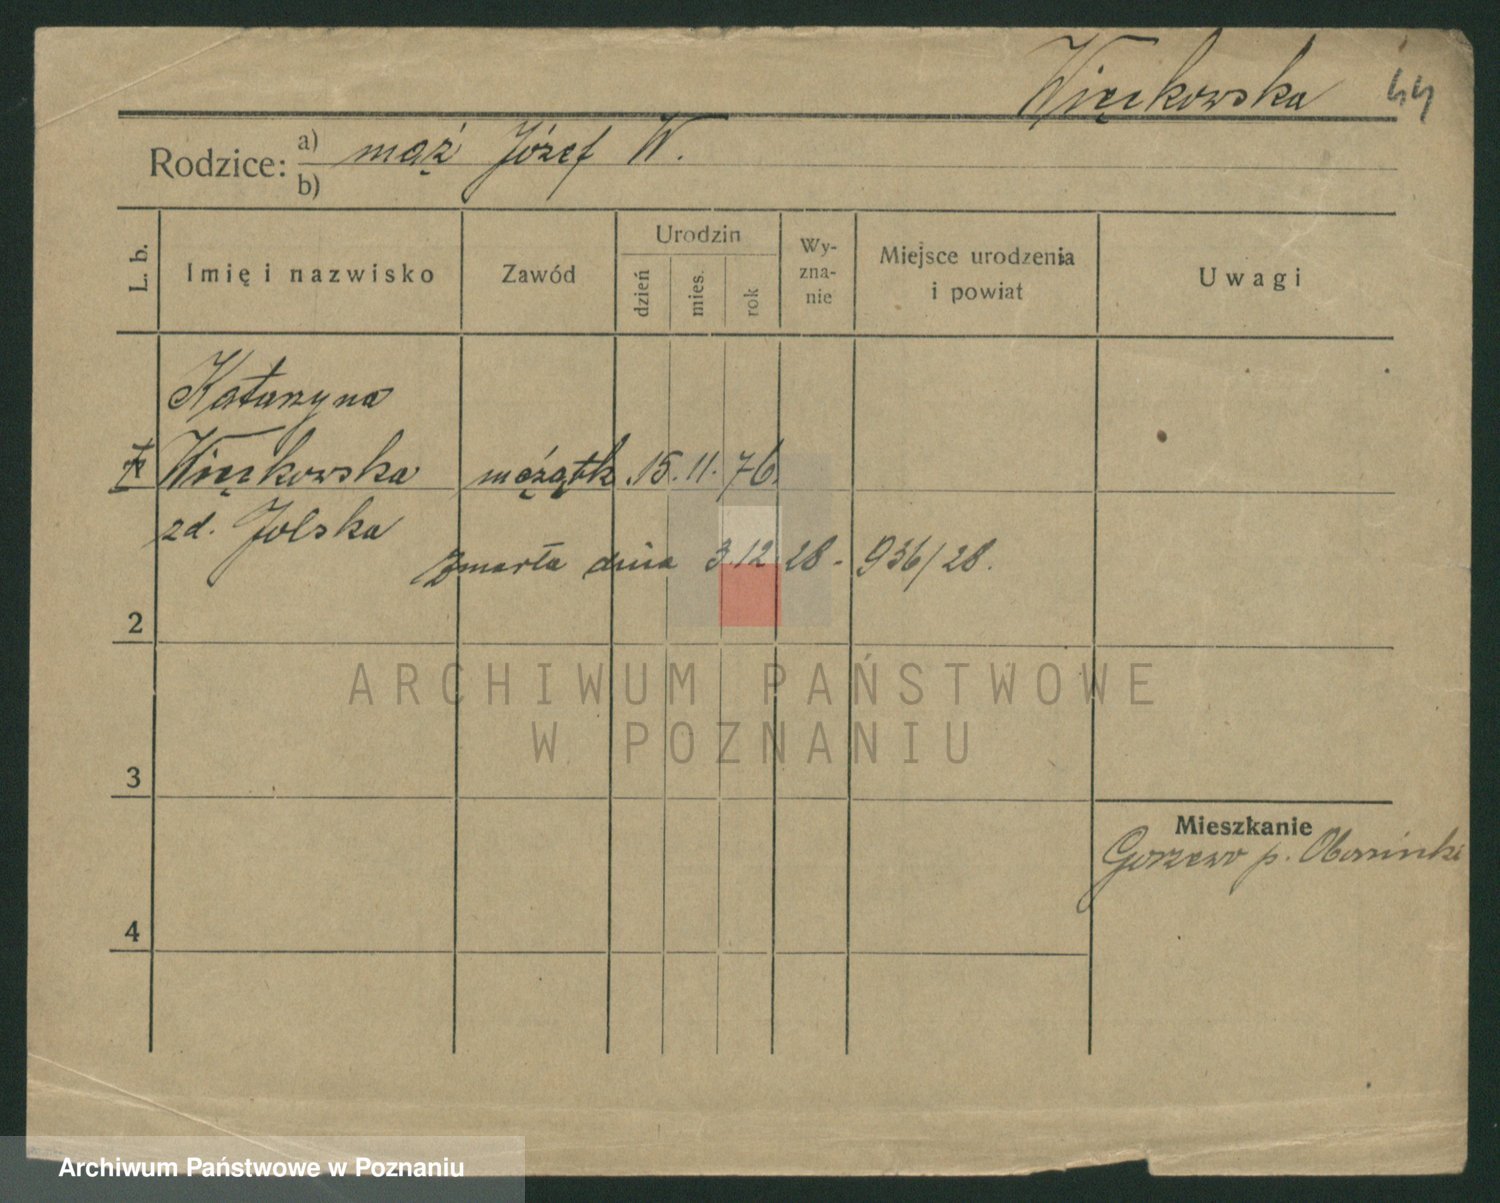 Więckowska 44
Rodzice: a) mąż Józef W.
b)
L. b. Imię i nazwisko Zawód Urodzin dzień mies. rok Wy-zna-nie Miejsce urodzenia i powiat Uwagi
Katarzyna
Więckowska mężatk. 15. 11. 76.
zd. Jolska
zmarła dnia 3.12.28 - 936/28.
2
ARCHIWUM PAŃSTWOWE
W POZNANIU
3
Mieszkanie
Gorzewo p.
4
Archiwum Państwowe w Poznaniu